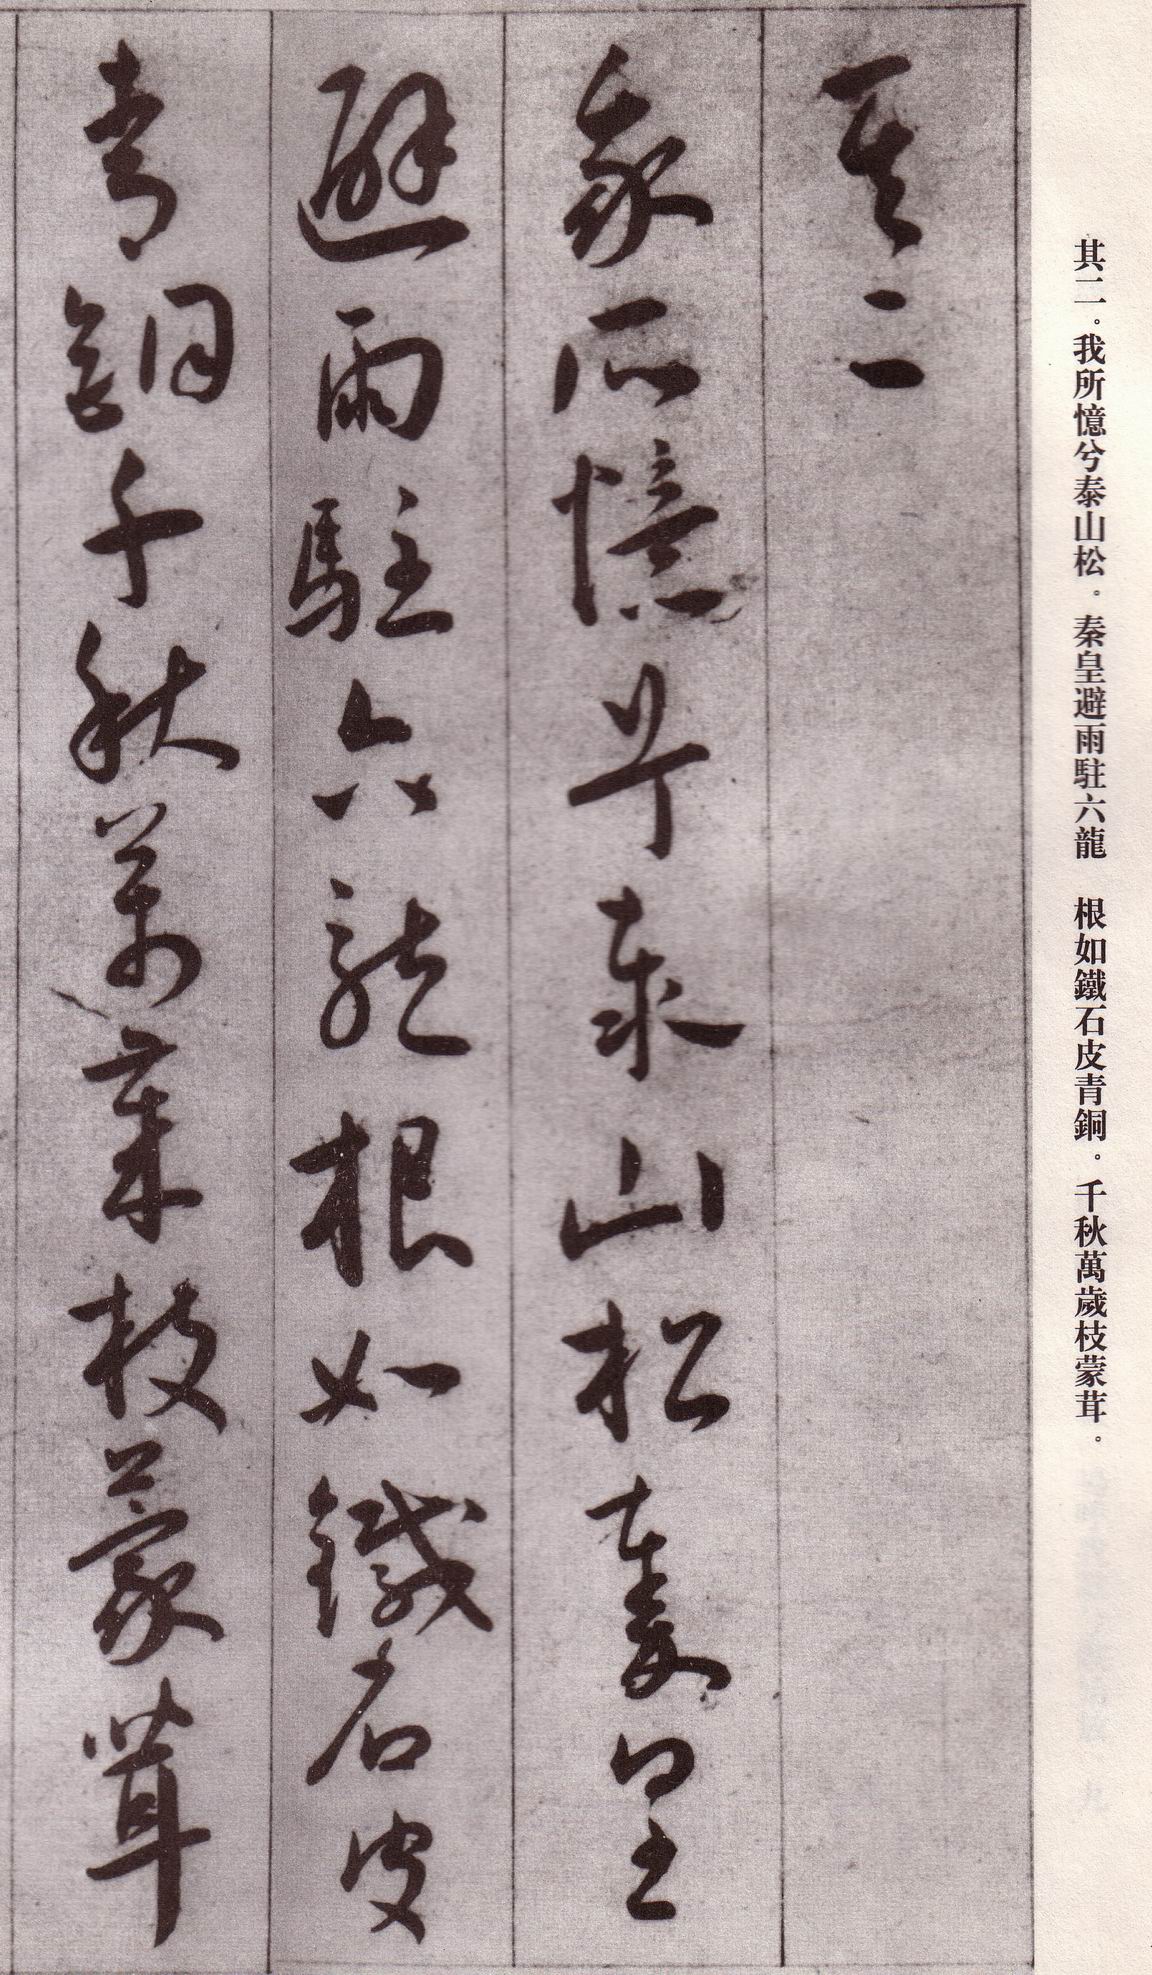 其二。我所憶兮泰山松。秦皇避雨駐六龍　根如鐵石皮青銅。千秋萬歲枝蒙茸。
其二
我所憶兮泰山松秦皇
避雨駐六龍根如鐵石皮
青銅千秋萬歲枝蒙茸